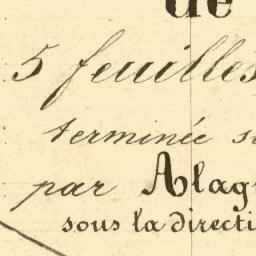 de
5 feuilles
terminée s
par Alag
sous la directi